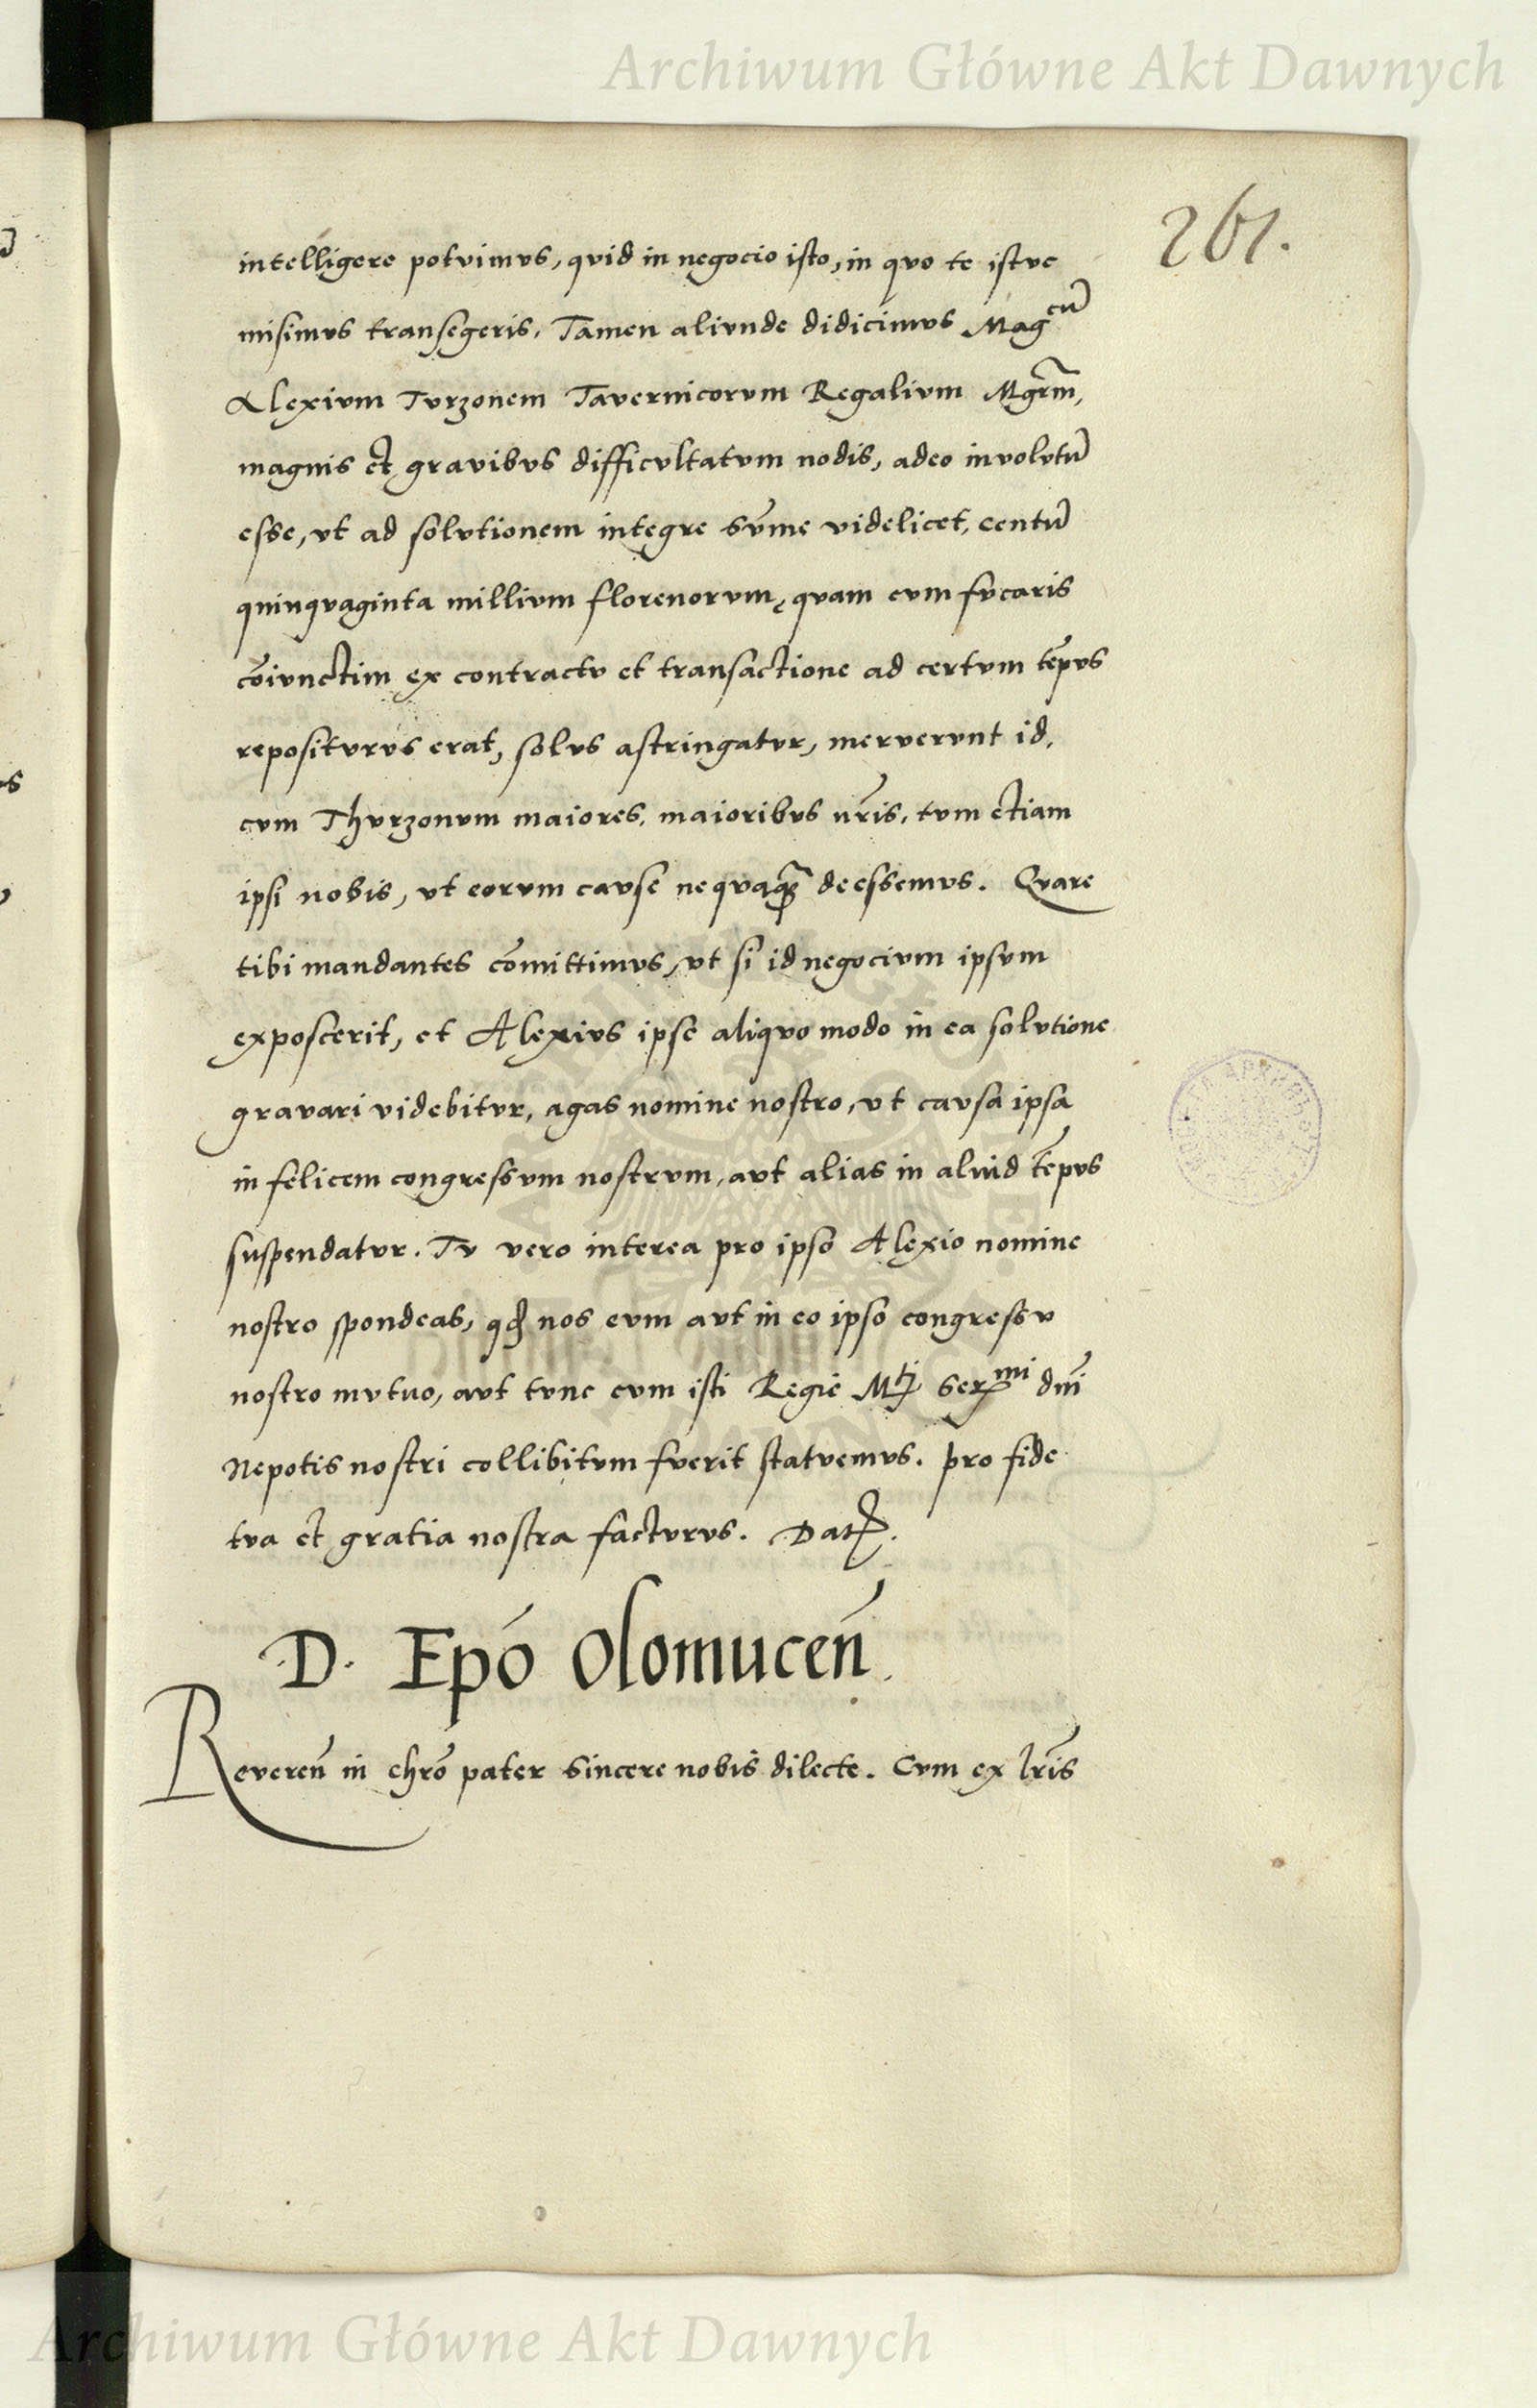 Archiwum Główne Akt Dawnych
261.
intelligere potuimus, quid in negocio isto, in quo te istuc
misimus transegeris. Tamen aliunde didicimus Mag^cũ
Alexium Turzonem Tavernicorum Regalium Mgr̃m,
magnis et gravibus difficultatum nodis, adeo involutũ
esse, ut ad solutionem integre sũme videlicet, centũ
quinquaginta millium florenorum, quam cum fucaris
cõiunctim ex contractu et transactione ad certum tẽpus
repositurus erat, solus astringatur, meruerunt id,
cum Thurzonum maiores, maioribus nr̃is, tum etiam
ipsi nobis, ut eorum cause nequaq̃ deessemus. Quare
tibi mandantes cõmittimus, ut si id negocium ipsum
exposcerit, et Alexius ipse aliquo modo in ea solutione
gravari videbitur, agas nomine nostro, ut causa ipsa
in felicem congressum nostrum, aut alias in aliud tẽpus
suspendatur. Tu vero interea pro ipso Alexio nomine
nostro spondeas, qd nos eum aut in eo ipso congressu
nostro mutuo, aut tunc cum isti Regie Mtj Ser^mi dñi
Nepotis nostri collibitum fuerit statuemus. pro fide
tua et gratia nostra facturus. Dat.
.D. Epõ Olomuceñ.
Revereñ in chrõ pater sincere nobis dilecte. Cum ex lr̃is
Archiwum Główne Akt Dawnych